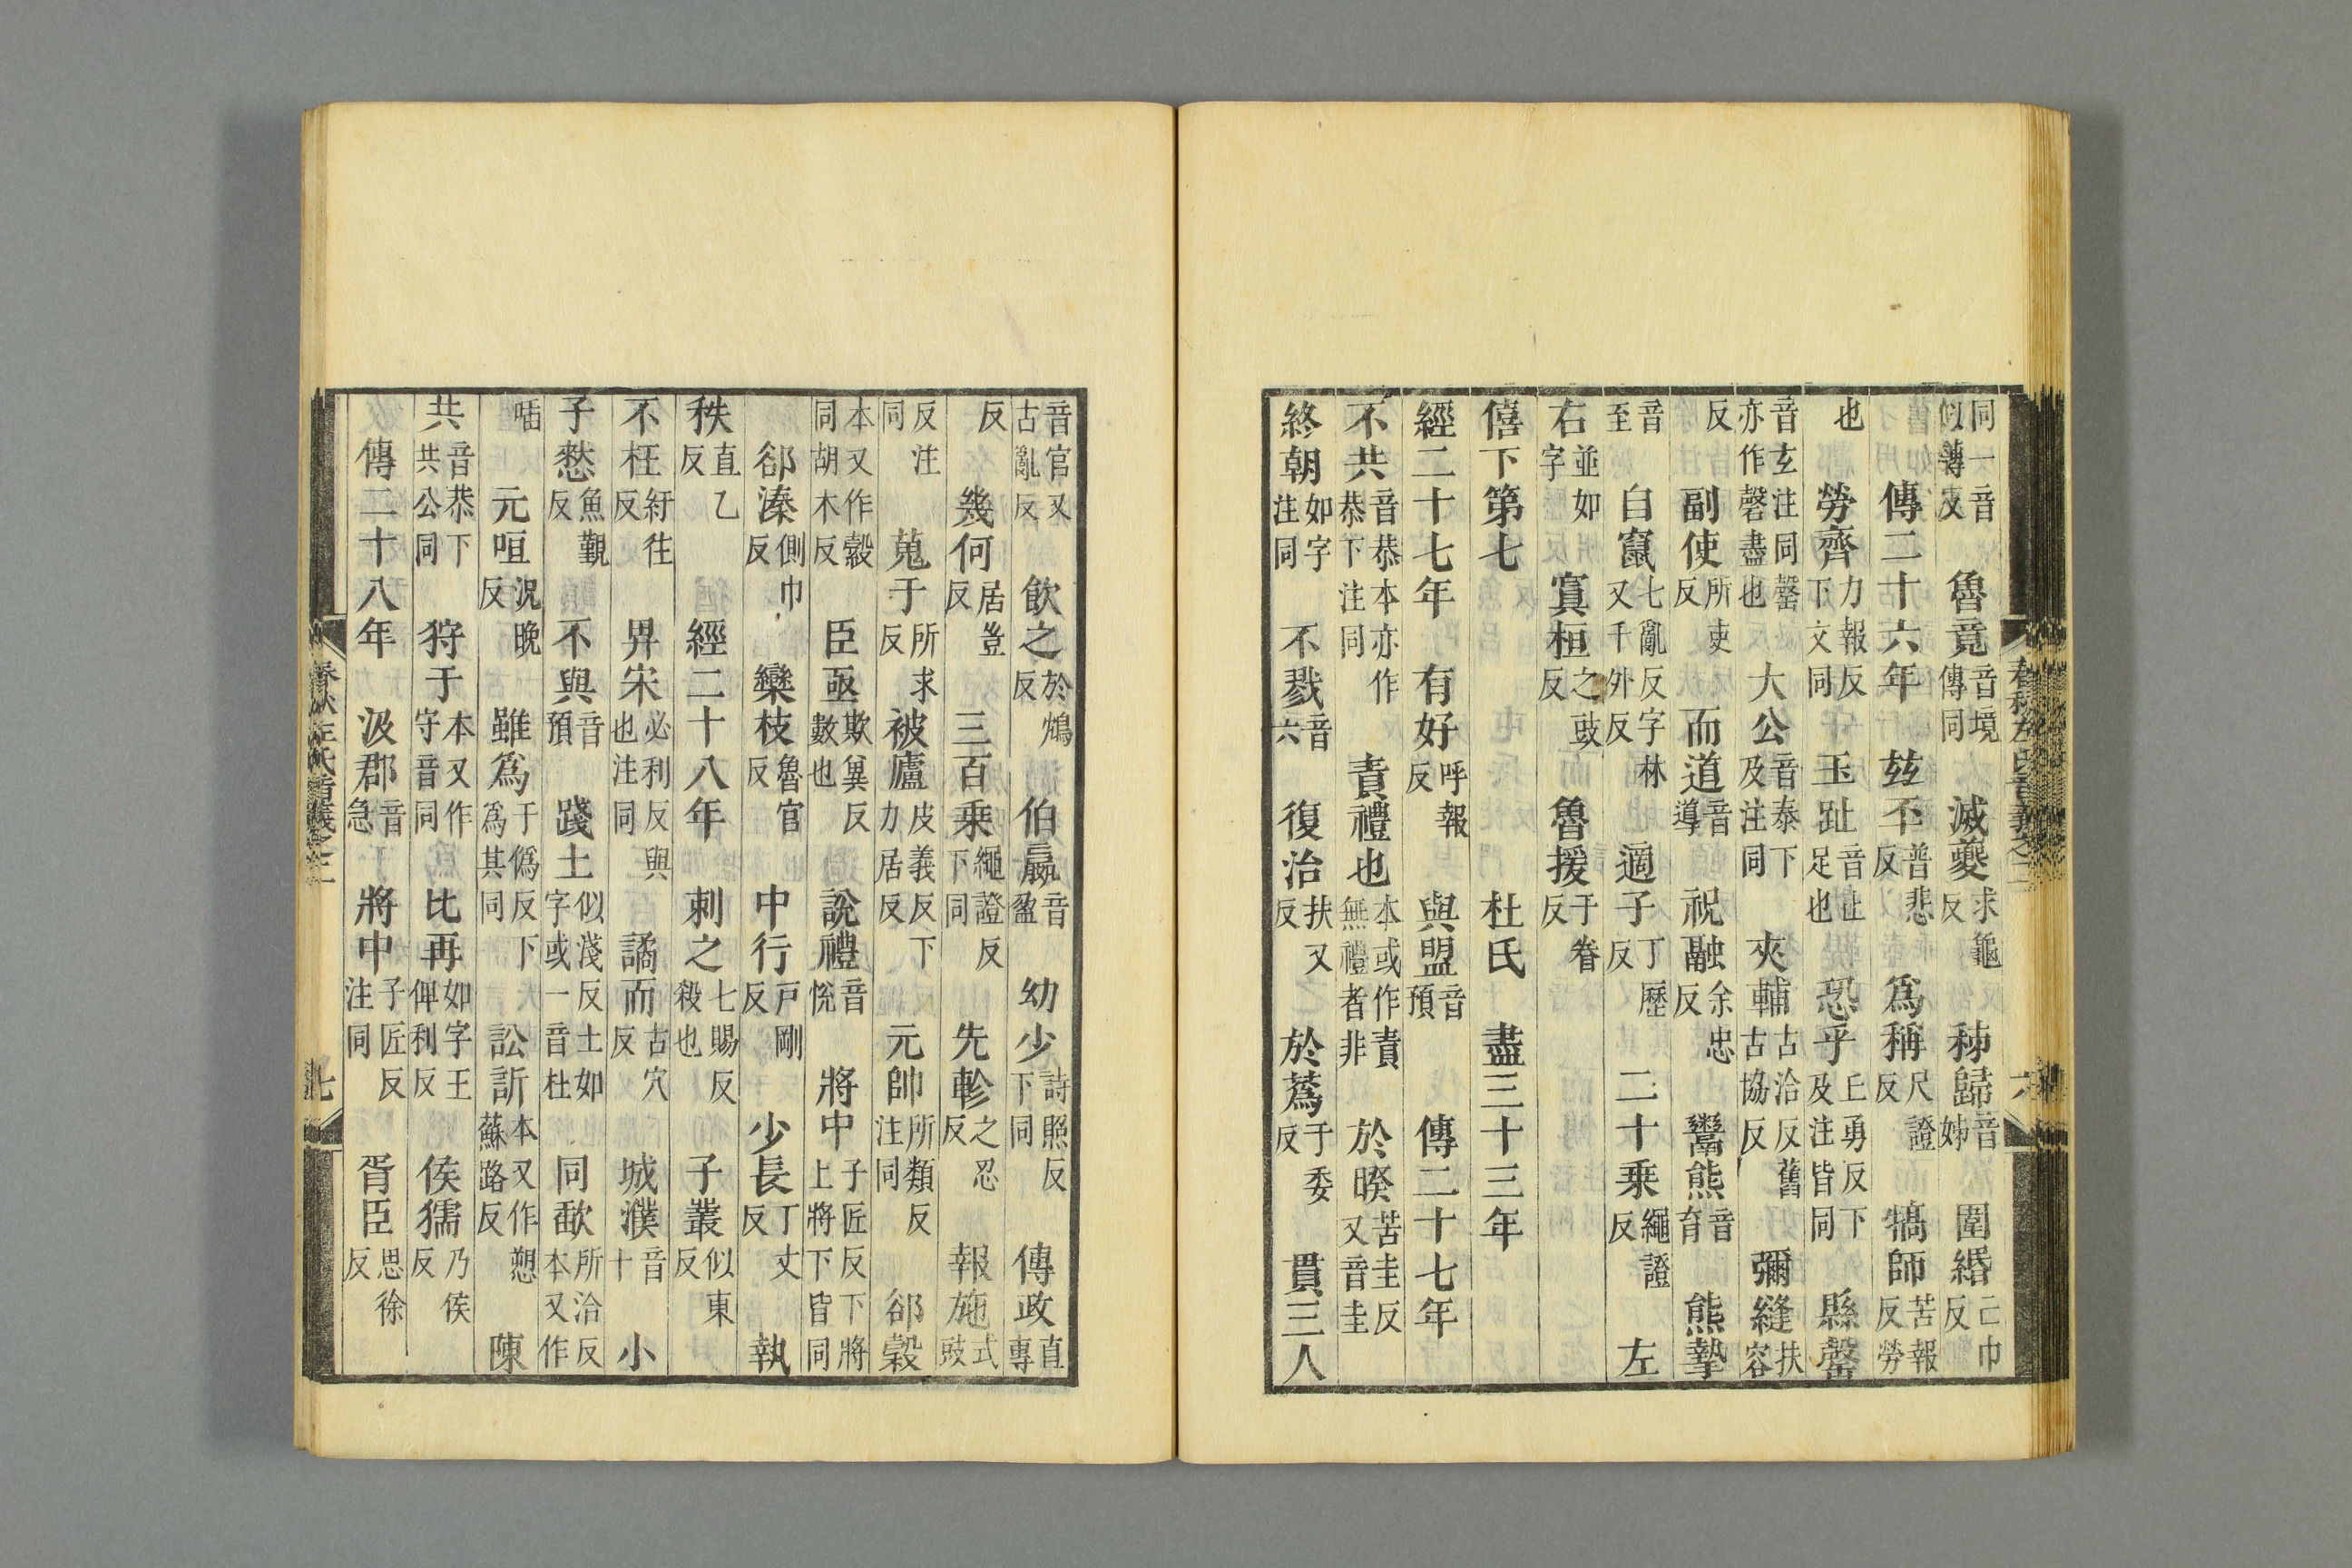 春秋左氏音義之二 六
同一音似轉反 魯竟音境傳同 滅夔求龜反 秭歸音姊 圍緡亡巾反
傳二十六年 茲丕普悲反 爲稱尺證反 犒師苦報反勞
也 勞齊力報反下文同 玉趾音止足也 恐乎丘勇反下及注皆同 縣罄
音玄注同罄亦作磬盡也 大公音泰下及注同 夾輔古洽反舊古協反 彌縫扶容
反 副使所吏反 而道音導 祝融余忠反 鬻熊音育 熊摯
音至 自竄七亂反字林又千外反 適子丁歷反 二十乘繩證反 左
右並如字 寘桓之豉反 魯援于眷反
僖下第七 杜氏 盡三十三年
經二十七年 有好呼報反 與盟音預 傳二十七年
不共音恭本亦作恭下注同 責禮也本或作責無禮者非 於睽苦圭反又音圭
終朝如字注同 不戮音六 復治扶又反 於蔿于委反 貫三人
音官又古亂反 飲之於鴆反 伯嬴音盈 幼少詩照反下同 傳政直專
反 幾何居豈反 三百乘繩證反下同 先軫之忍反 報施式豉
反注同 蒐于所求反 被廬皮義反下力居反 元帥所類反注同 郤縠
本又作㝅同胡木反 臣亟欺冀反數也 說禮音悅 將中子匠反下將上將下皆同
郤溱側巾反 欒枝魯官反 中行戶剛反 少長丁丈反 執
秩直乙反 經二十八年 刺之七賜反殺也 子叢似東反
不枉紆往反 畀宋必利反與也注同 譎而古穴反 城濮音卜 小
子憖魚覲反 不與音預 踐土似淺反土如字或一音杜 同歃所洽反本又作
喢 元咺況晚反 雖爲于僞反下爲其同 訟訴本又作愬蘇路反 陳
共音恭下共公同 狩于本又作守音同 比再如字王俾利反 侯獳乃侯反
傳二十八年 汲郡音急 將中子匠反注同 胥臣思徐反
春秋左氏音義之二 七